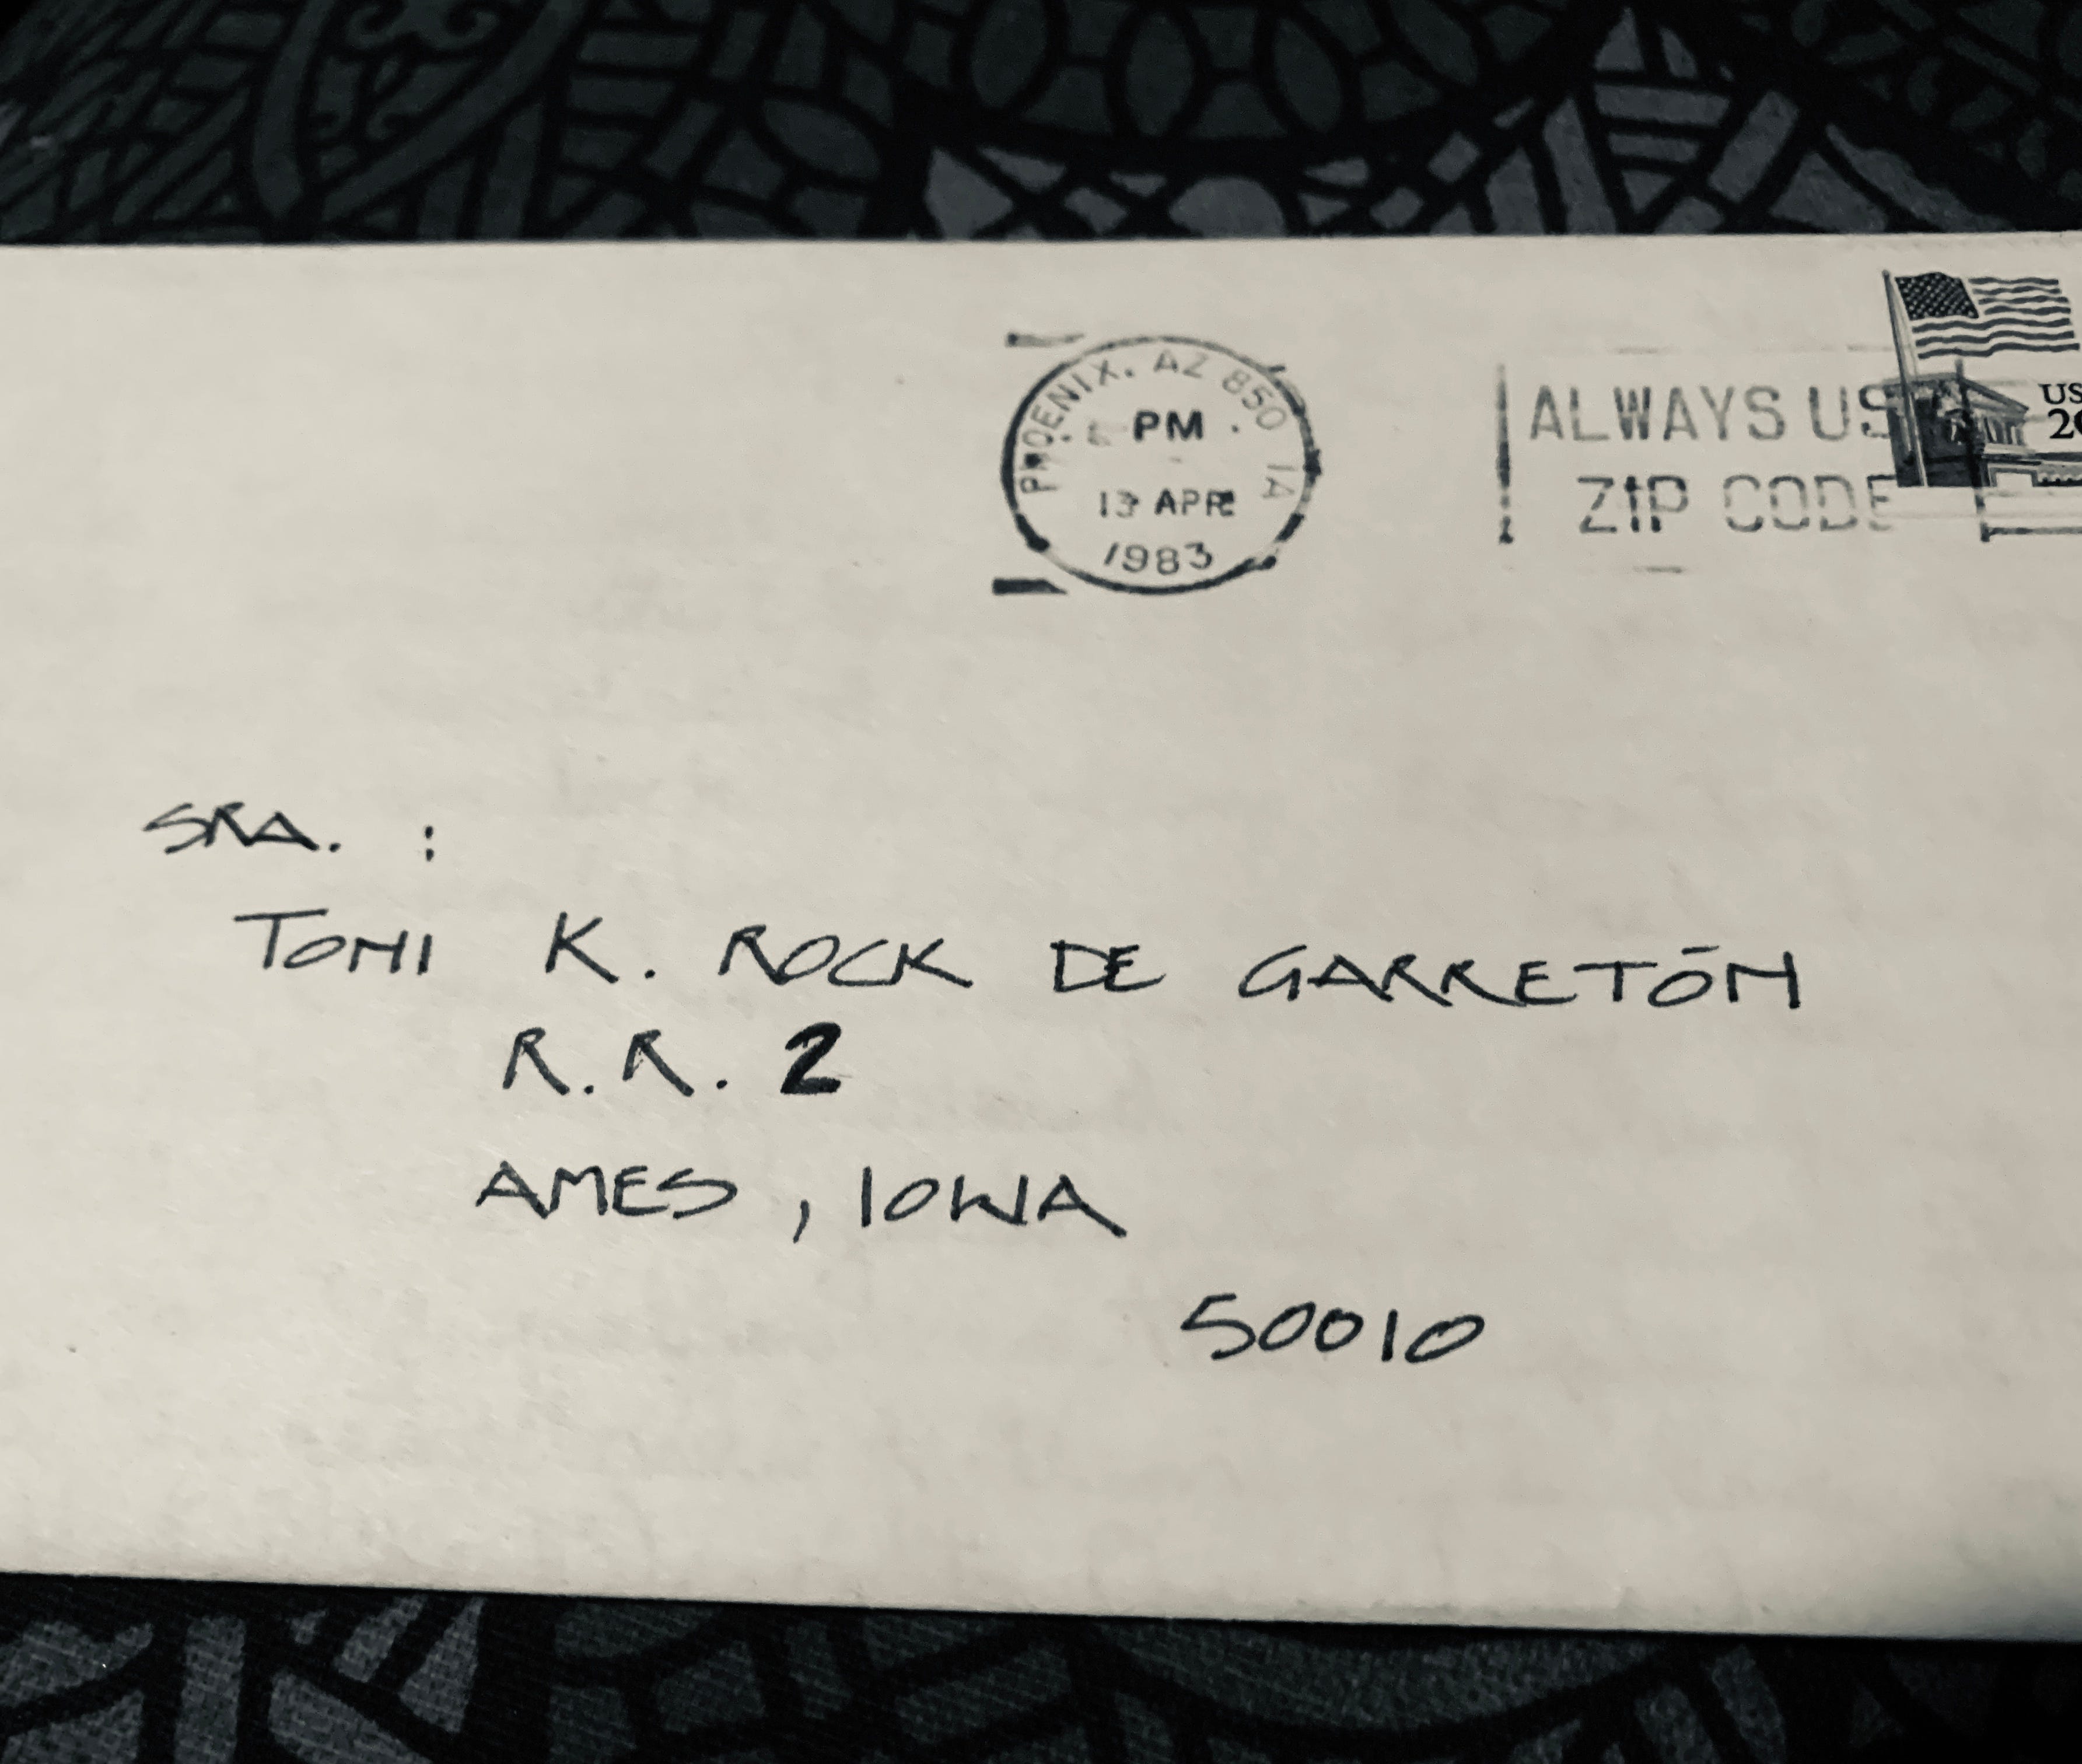 PHOENIX. AZ 850
PM
13 APR
1983
1A
ALWAYS US
ZIP CODE
US
20
SRA. :
TONI K. ROCK DE GARRETÓN
R.R. 2
AMES, IOWA
50010